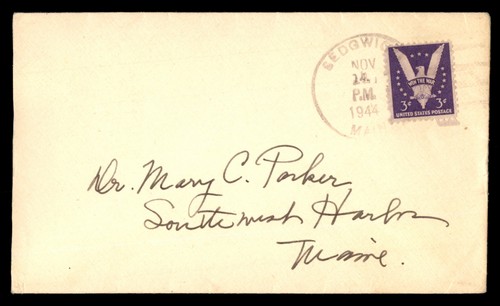 SEDGWICK
NOV
14
P.M.
1944
MAINE
WIN THE WAR
3¢ 3¢
UNITED STATES POSTAGE
Dr. Mary C. Parker
Southwest Harbor
Maine.